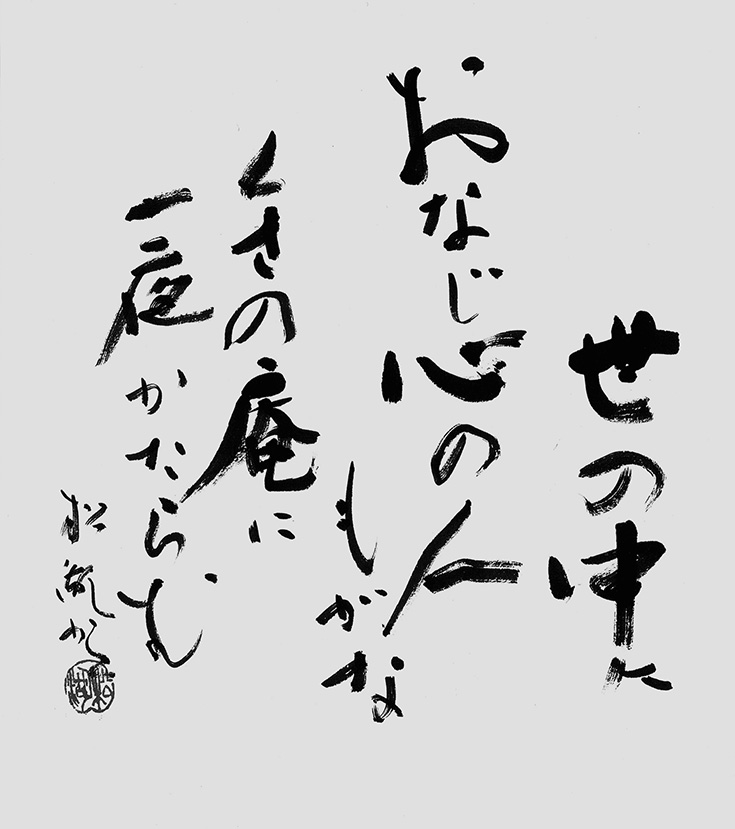 世の中に
おなじ心の人
もがな
くさの庵に
一夜かたらむ
松風かく